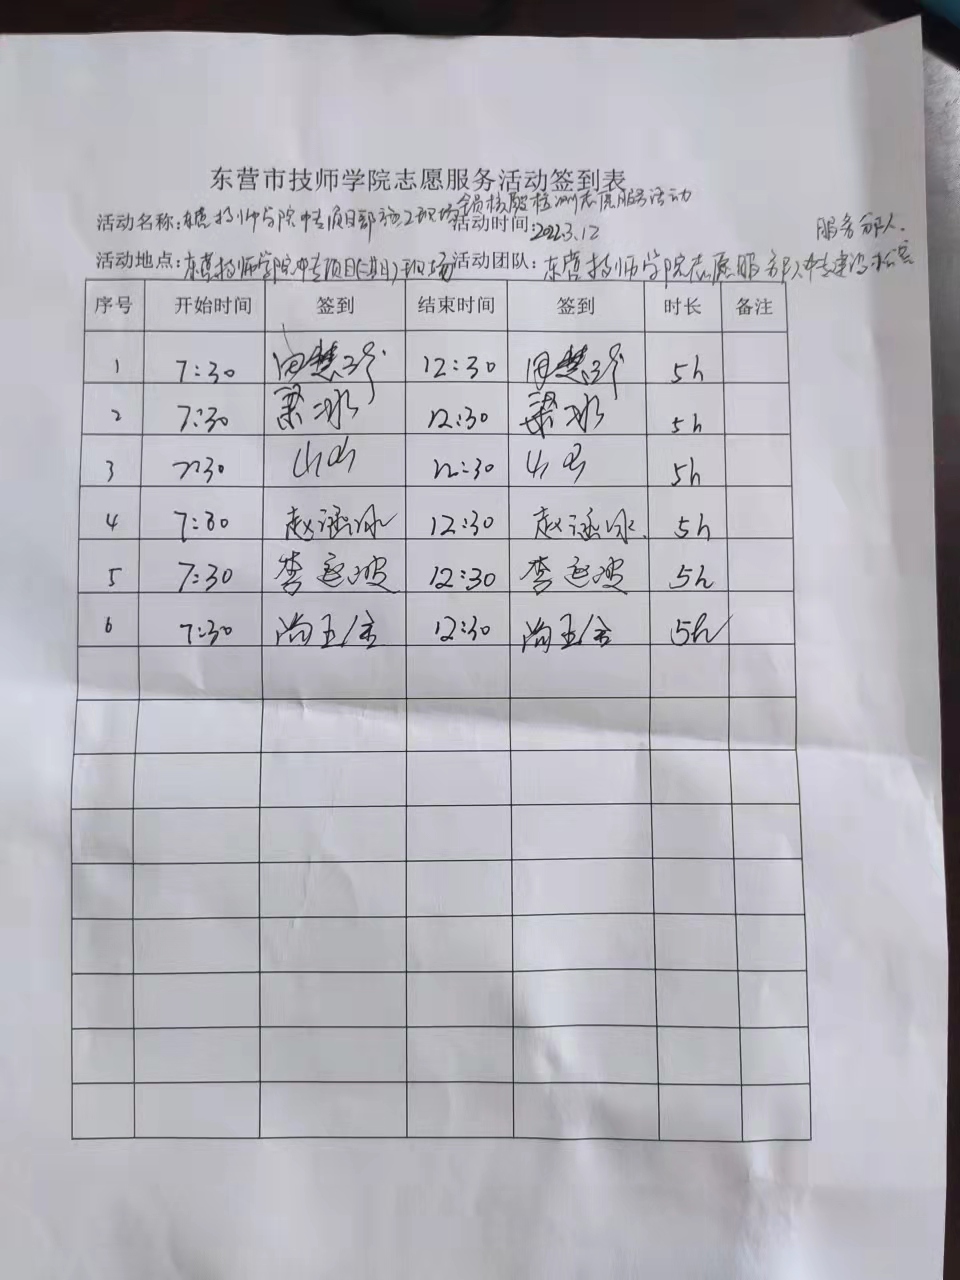 东营市技师学院志愿服务活动签到表
全员核酸检测志愿服务活动
活动名称:东营技师学院中专项目部施工现场 活动时间:2022.3.12 服务部队
活动地点:东营技师学院中专项目(二期)现场 活动团队:东营技师学院志愿服务队中专建设
序号 开始时间 签到 结束时间 签到 时长 备注
1 7:30 12:30 5h
2 7:30 梁冰 12:30 梁冰 5h
3 7:30 12:30 5h
4 7:30 赵涵冰 12:30 赵涵冰 5h
5 7:30 李 波 12:30 李 波 5h
6 7:30 尚玉 12:30 尚玉 5h